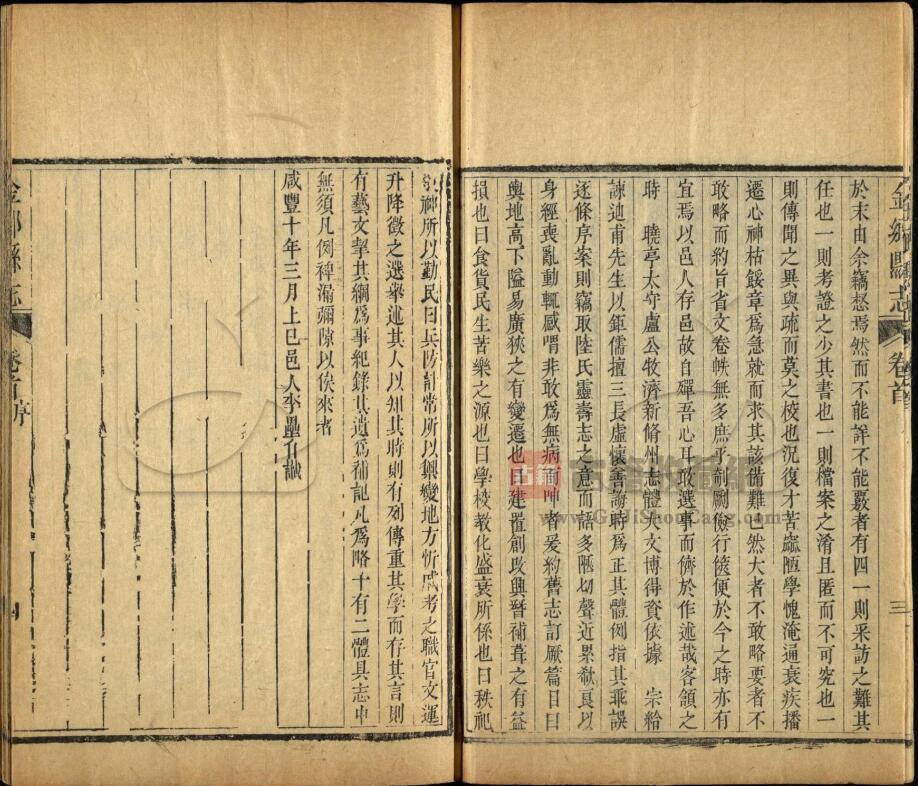 於末由余竊惄焉然而不能詳不能覈者有四一則采訪之難其
任也一則考證之少其書也一則檔案之淆且匿而不可究也一
則傳聞之異與疏而莫之校也況復才苦蹤陋學愧淹通衰疾播
遷心神枯餒章為急就而求其該備難已然大者不敢略要者不
敢略而約旨省文卷帙無多庶乎剞劂儉行篋便於今之時亦有
宜焉以邑人存邑故自殫吾心耳敢選事而儕於作述哉客頷之
時 曉亭太守盧公牧濟新脩州志體大文博得資依據 宗給
諫迪甫先生以鉅儒擅三長虛懷善誘時為正其體例指其乖誤
逐條序案則竊取陸氏靈壽志之意而語多
身經喪亂動輒感喟非敢為無病而呻者爰約舊志訂厥篇目曰
輿地高下隘易廣狹之有變遷也曰建置創改興替補葺之有益
損也曰食貨民生苦樂之源也曰學校教化盛衰所係也曰秩祀
神所以勤民曰兵防計常所以馭變地方忻戚考之職官文運
升降徵之選舉述其人以知其時則有列傳重其學而存其言則
有藝文挈其綱為事紀錄其遺為補記凡為略十有二體具志中
無須凡例裨漏彌隙以俟來者
咸豐十年三月上巳邑人李壘自識
金鄉縣志
卷首
三
金鄉縣志
卷首序
四
古籍收藏網
www.GuJiShouCang.com